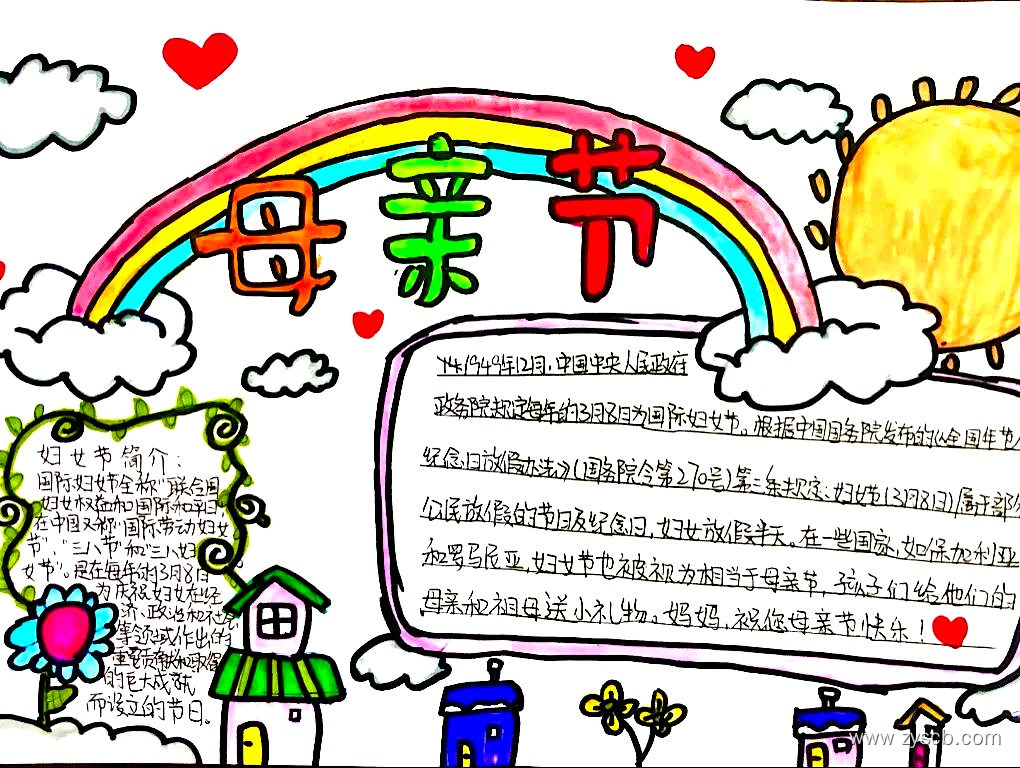 母亲节
妇女节简介:
国际妇女节全称"联合国
妇女权益和国际和平日"
在中国又称"国际劳动妇女
节"、"三八节"和"三八妇
女节"。是在每年的3月8日
为庆祝妇女在经
济、政治和社会
等领域作出的
重要贡献和取得
的巨大成就
而设立的节日。
1949年12月,中国中央人民政府
政务院规定每年的3月8日为国际妇女节。根据中国国务院发布的《全国年节
纪念日放假办法》(国务院令第270号)第三条规定:妇女节(3月8日)属于部
公民放假的节日及纪念日,妇女放假半天。在一些国家,如保加利亚
和罗马尼亚,妇女节也被视为相当于母亲节,孩子们给他们的
母亲和祖母送小礼物。妈妈,祝您母亲节快乐!
www.zyscb.com